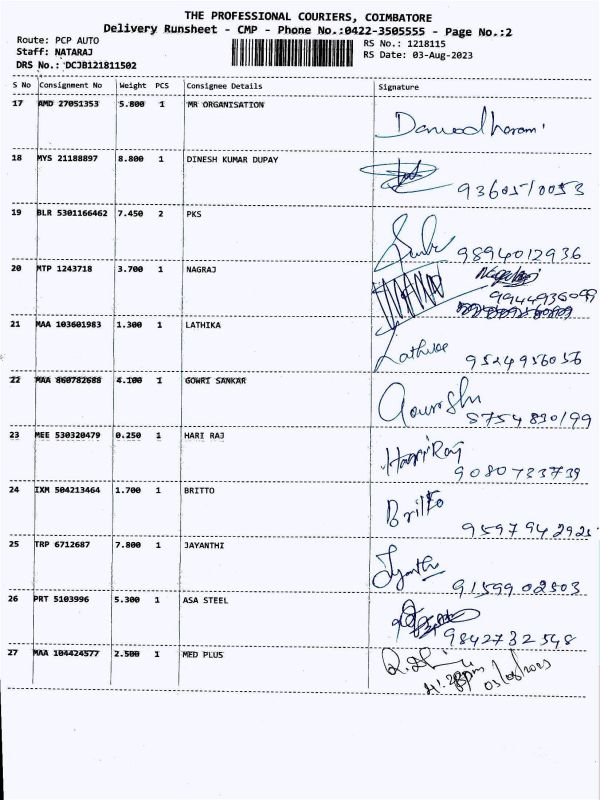 THE PROFESSIONAL COURIERS, COIMBATORE
Delivery Runsheet - CMP - Phone No.:0422-3505555 - Page No.:2
Route: PCP AUTO
RS No.: 1218115
Staff: NATARAJ
RS Date: 03-Aug-2023
DRS No.: DCJB121811502
S No Consignment No Weight PCS Consignee Details Signature
17 AMD 27051353 5.800 1 MR ORGANISATION
18 MYS 21188897 8.800 1 DINESH KUMAR DUPAY
9360510053
19 BLR 5301166462 7.450 2 PKS
9894012936
20 MTP 1243718 3.700 1 NAGRAJ
9944936099
21 MAA 103601983 1.300 1 LATHIKA
9524956056
22 MAA 860782688 4.100 1 GOWRI SANKAR
8754830199
23 MEE 530320479 0.250 1 HARI RAJ
Hari Raj
9080733739
24 IXM 504213464 1.700 1 BRITTO
Britto
9597942925
25 TRP 6712687 7.800 1 JAYANTHI
9159902503
26 PRT 5103996 5.300 1 ASA STEEL
9842732548
27 MAA 104424577 2.500 1 MED PLUS
03/08/2023